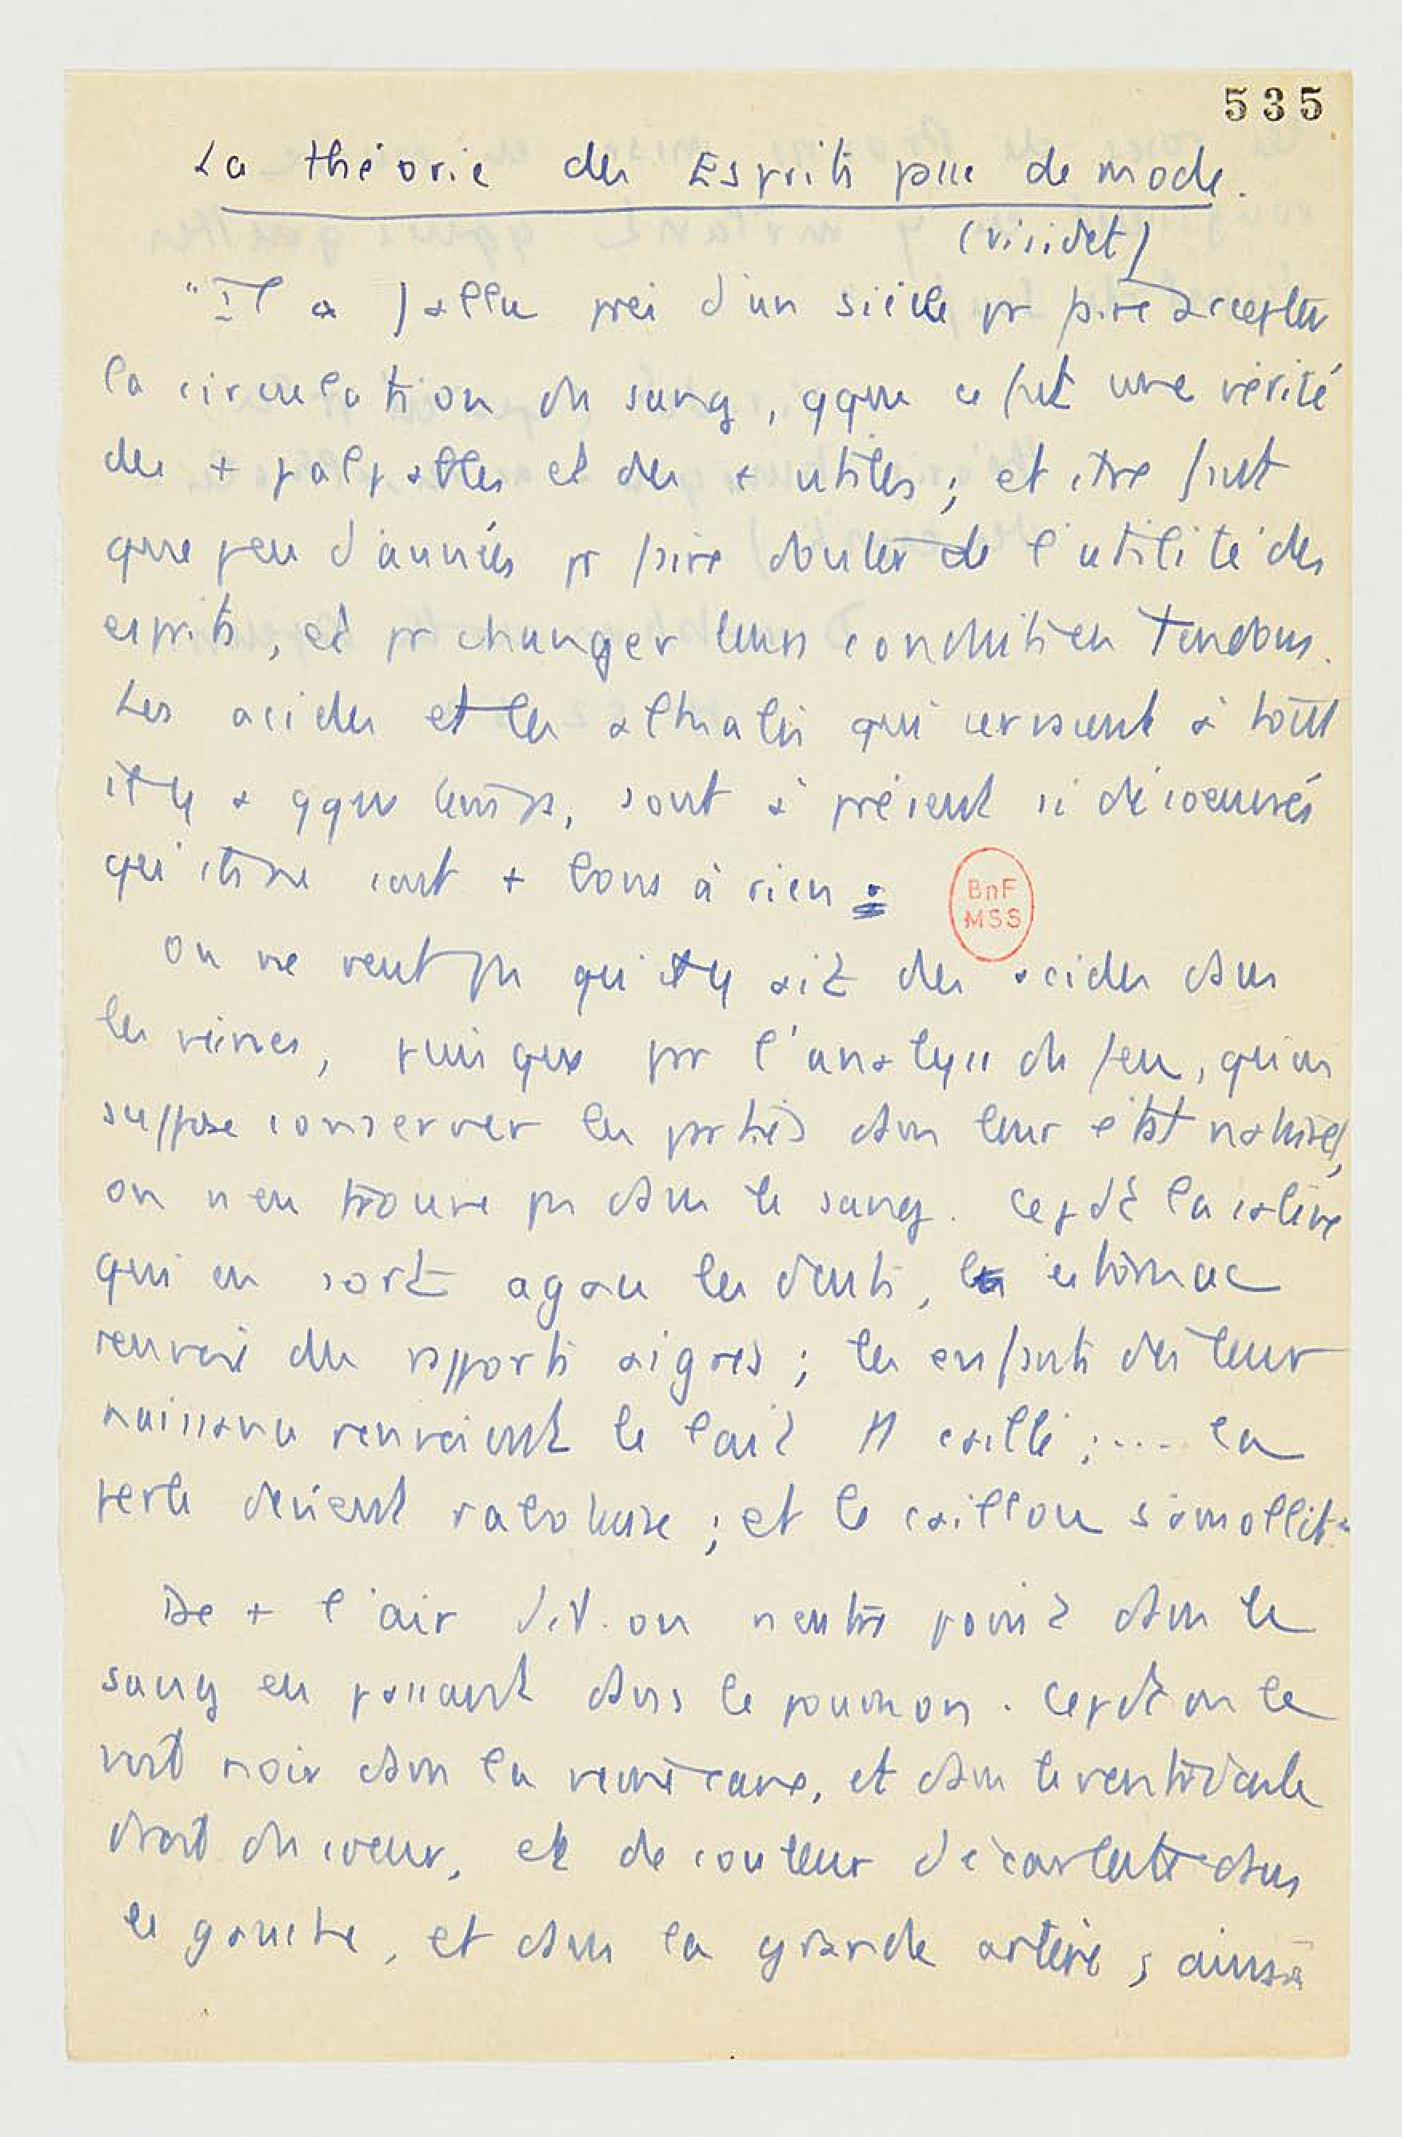 535
La théorie des Esprits passe de mode.
(Viridet)
"Il a fallu près d'un siècle pr faire accepter
la circulation du sang, qque ce fut une vérité
des + palpables et des + utiles ; et il ne faut
que peu d'années pr faire douter de l'utilité des
esprits, et pr changer leurs conduits en tendons.
Les acides et les alkalis qui servaient à tout
il y a qque temps, sont à présent si désoeuvrés
qu'ils ne sont + bons à rien.
On ne veut pas qu'il y ait des acides dans
les veines, puisque par l'analyse du feu, qu'on
suppose conserver les parties dans leur état naturel,
on n'en trouve pas dans le sang. Cepdt la salive
qui en sort agace les dents, estomac
renvoie des rapports aigres ; les enfants dès leur
naissance renvoient le lait caillé ; .... la
perle devient raboteuse ; et le caillou s'amollit.
De + l'air dit-on n'entre point dans le
sang en passant dans le poumon. Cepdt on le
voit noir dans la veine cave, et dans le ventricule
droit du coeur, et de couleur d'écarlate dans
le gauche, et dans la grande artère ; ainsi
BnF
MSS